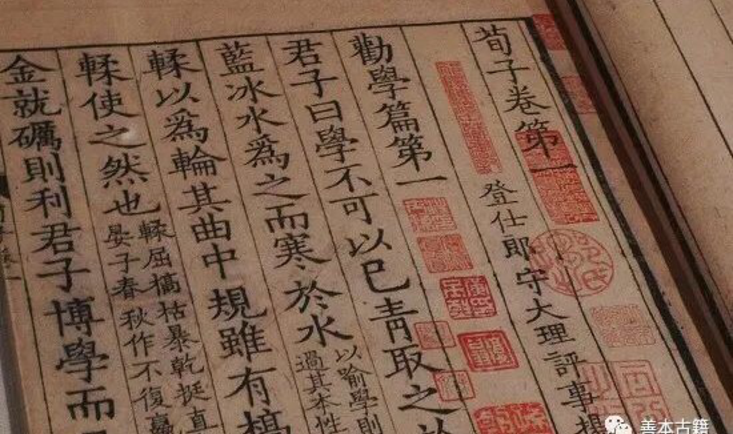 荀子卷第一
登仕郎守大理評事
勸學篇第一
君子曰學不可以已青取之
藍冰水爲之而寒於水
以喻學則
過其本性
輮以爲輪其曲中規雖有槁
輮使之然也
輮屈槁枯暴乾挺直
晏子春秋作不復贏
金就礪則利君子博學而
善本古籍